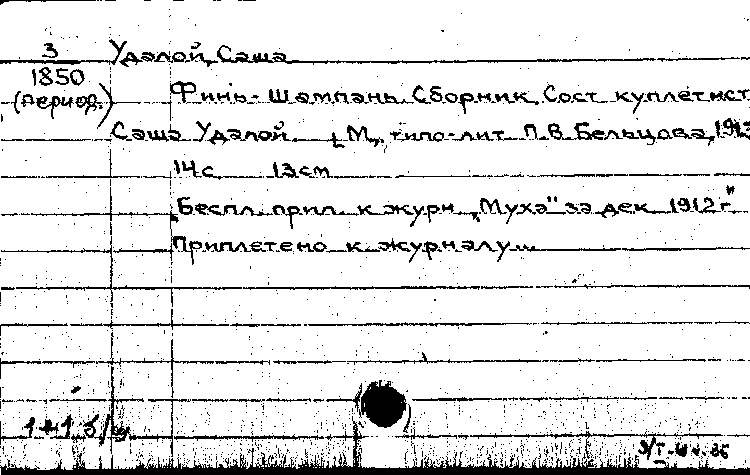 3 Удалой, Саша
1850
(период.)
Финь-Шампань. Сборник. Сост. куплетист
Саша Удалой. [М., типо-лит. П.В. Бельцова, 1912
14 с. 13 см.
„Беспл. прил. к журн. „Муха" за дек. 1912 г."
Приплетено к журналу...